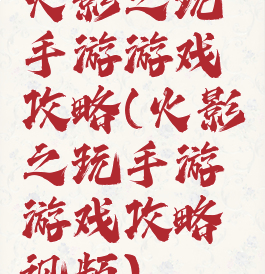 火影之玩
手游游戏
攻略(火影
之玩手游
游戏攻略
视频)